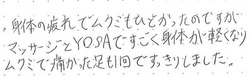 ・身体の疲れでムクミもひどかったのですが
マッサージとYOSAですごく身体が軽くなり
ムクミで痛かった足も1回ですっきりしました。